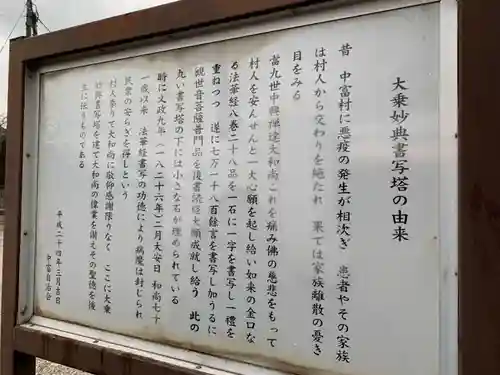 大乗妙典書写塔の由来
昔 中富村に悪疫の発生が相次ぎ 患者やその家族
は村人から交わりを絶たれ 果ては家族離散の憂き
目をみる
當九世中興禅達大和尚これを痛み佛の慈悲をもって
村人を安んぜんと一大心願を起し給い如来の金口な
る法華経八巻二十八品を一石に一字を書写し一礼を
重ねつつ 遂に七万一千八百餘言を書写し加うるに
観世音菩薩普門品を後書続け大願成就し給う 此の
丸い書写塔の下には小さな石が埋められている
時に文政九年(一八二十六年)二月大安日 和尚七十
一歳 以来 法華経書写の功徳により病魔は封じられ
民衆の安らぎを得しという
村人挙りて大和尚に敬仰感謝限りなく ここに大乗
妙典書写塔を建て大和尚の偉業を讃えその聖徳を後
生に伝うものである
平成二十四年三月吉日
中富自治会